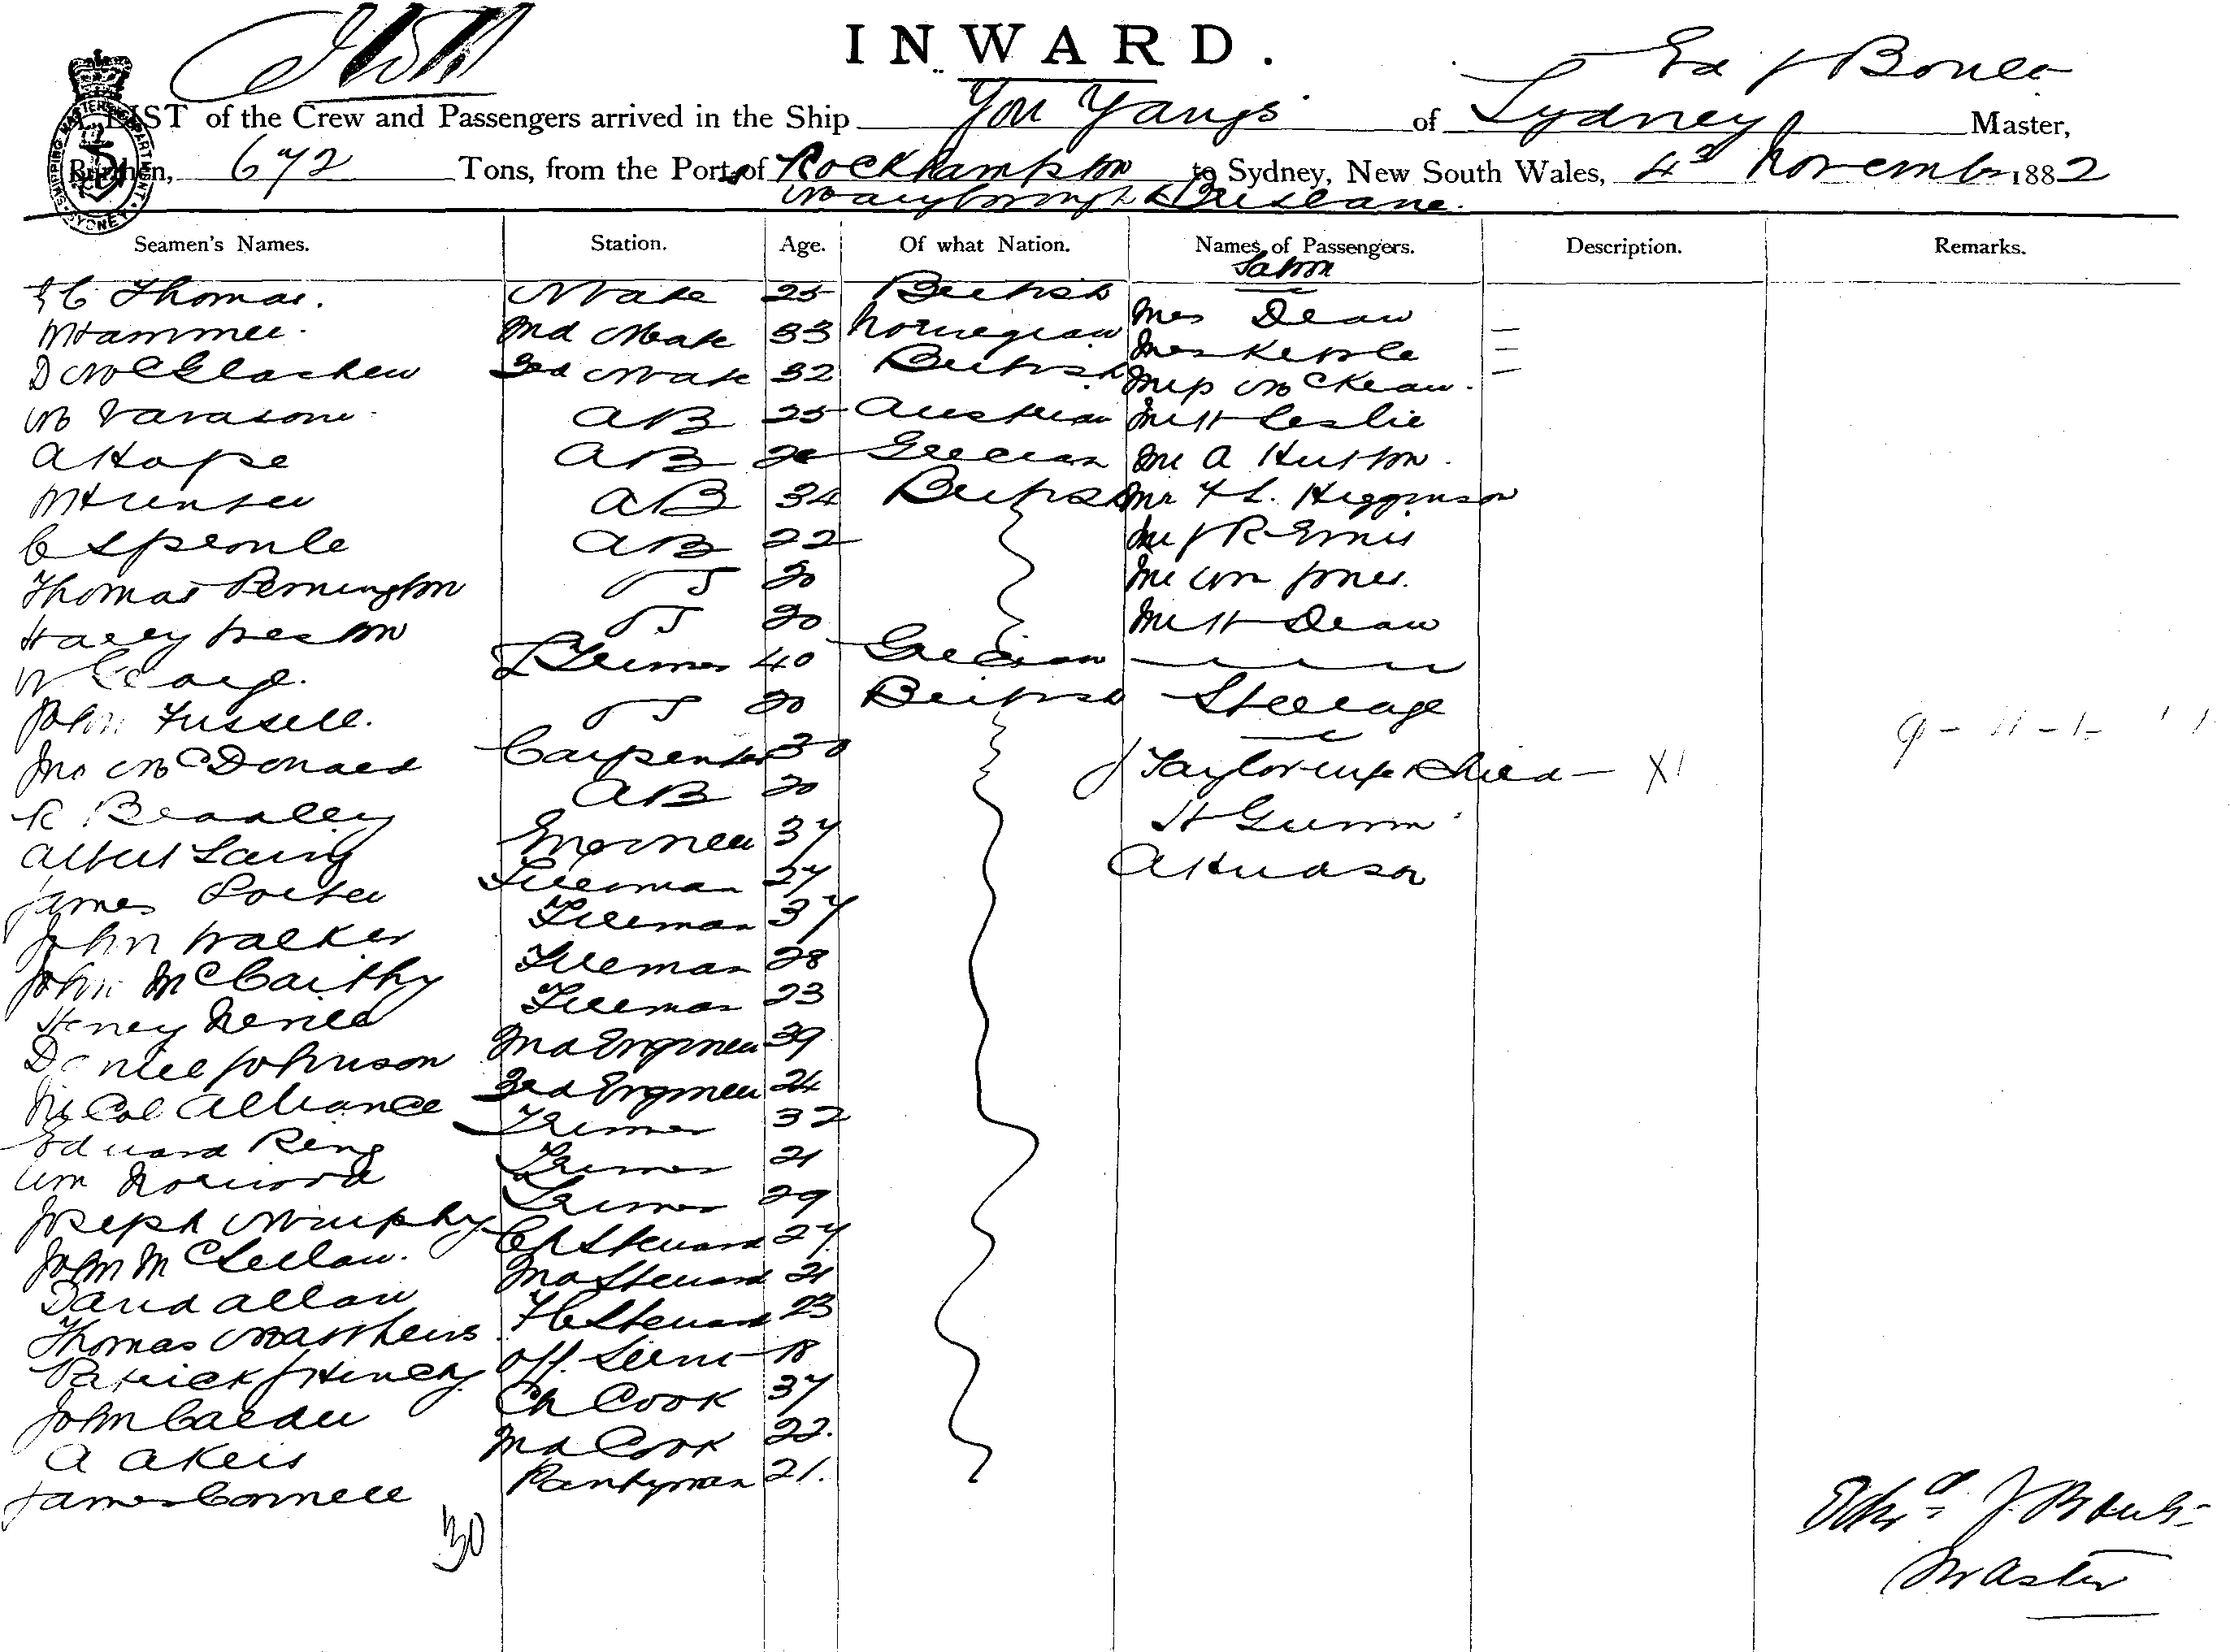 INWARD.
Ed J Boult
LIST of the Crew and Passengers arrived in the Ship You Yangs of Sydney Master,
Burthen, 672 Tons, from the Ports of Rockhampton to Sydney, New South Wales, 4th November 1882
Maryborough & Brisbane.
Seamen's Names. Station. Age. Of what Nation. Names of Passengers. Description. Remarks.
Saloon
Thomas. Mate 25 British Mrs Dean
2nd Mate 33 Norwegian Mrs
D McGlashen 3rd Mate 32 British Miss McKean.
AB 25 Austrian Mr H Leslie
A Hope AB Grecian Mr A Hutton.
M Hunter AB 34 British Mr F L. Higginson
C Sproule AB 22 Mr J R Ennis
Thomas Pennington OS 20 Mr Wm Jones.
Harry Preston OS 20 Mr H Dean
Trimmer 40 Grecian
John Fussell. OS 20 British Steerage
Jno McDonald Carpenter 30 J Taylor wife & child
R Bradley AB 20 H Gunn
Albert Laing Engineer 37 A Hudson
James Porter Fireman 27
John Walker Fireman 37
John McCarthy Fireman 28
Henry Nevill Fireman 23
Daniel Johnson 2nd Engineer 39
Nicol Alliance 3rd Engineer 24
Edward Ring Trimmer 32
Wm Norwood Trimmer 21
Joseph Murphy Trimmer 29
John McLellan. Ch Steward 27
David Allan 2nd Steward 21
Thomas Matthews F C Steward 23
Patrick J Hinchy Off. Serv 18
John Calder Ch Cook 37
A Akers 2nd Cook 22.
James Connell Pantryman 21.
30
Edwd J. Boult
Master